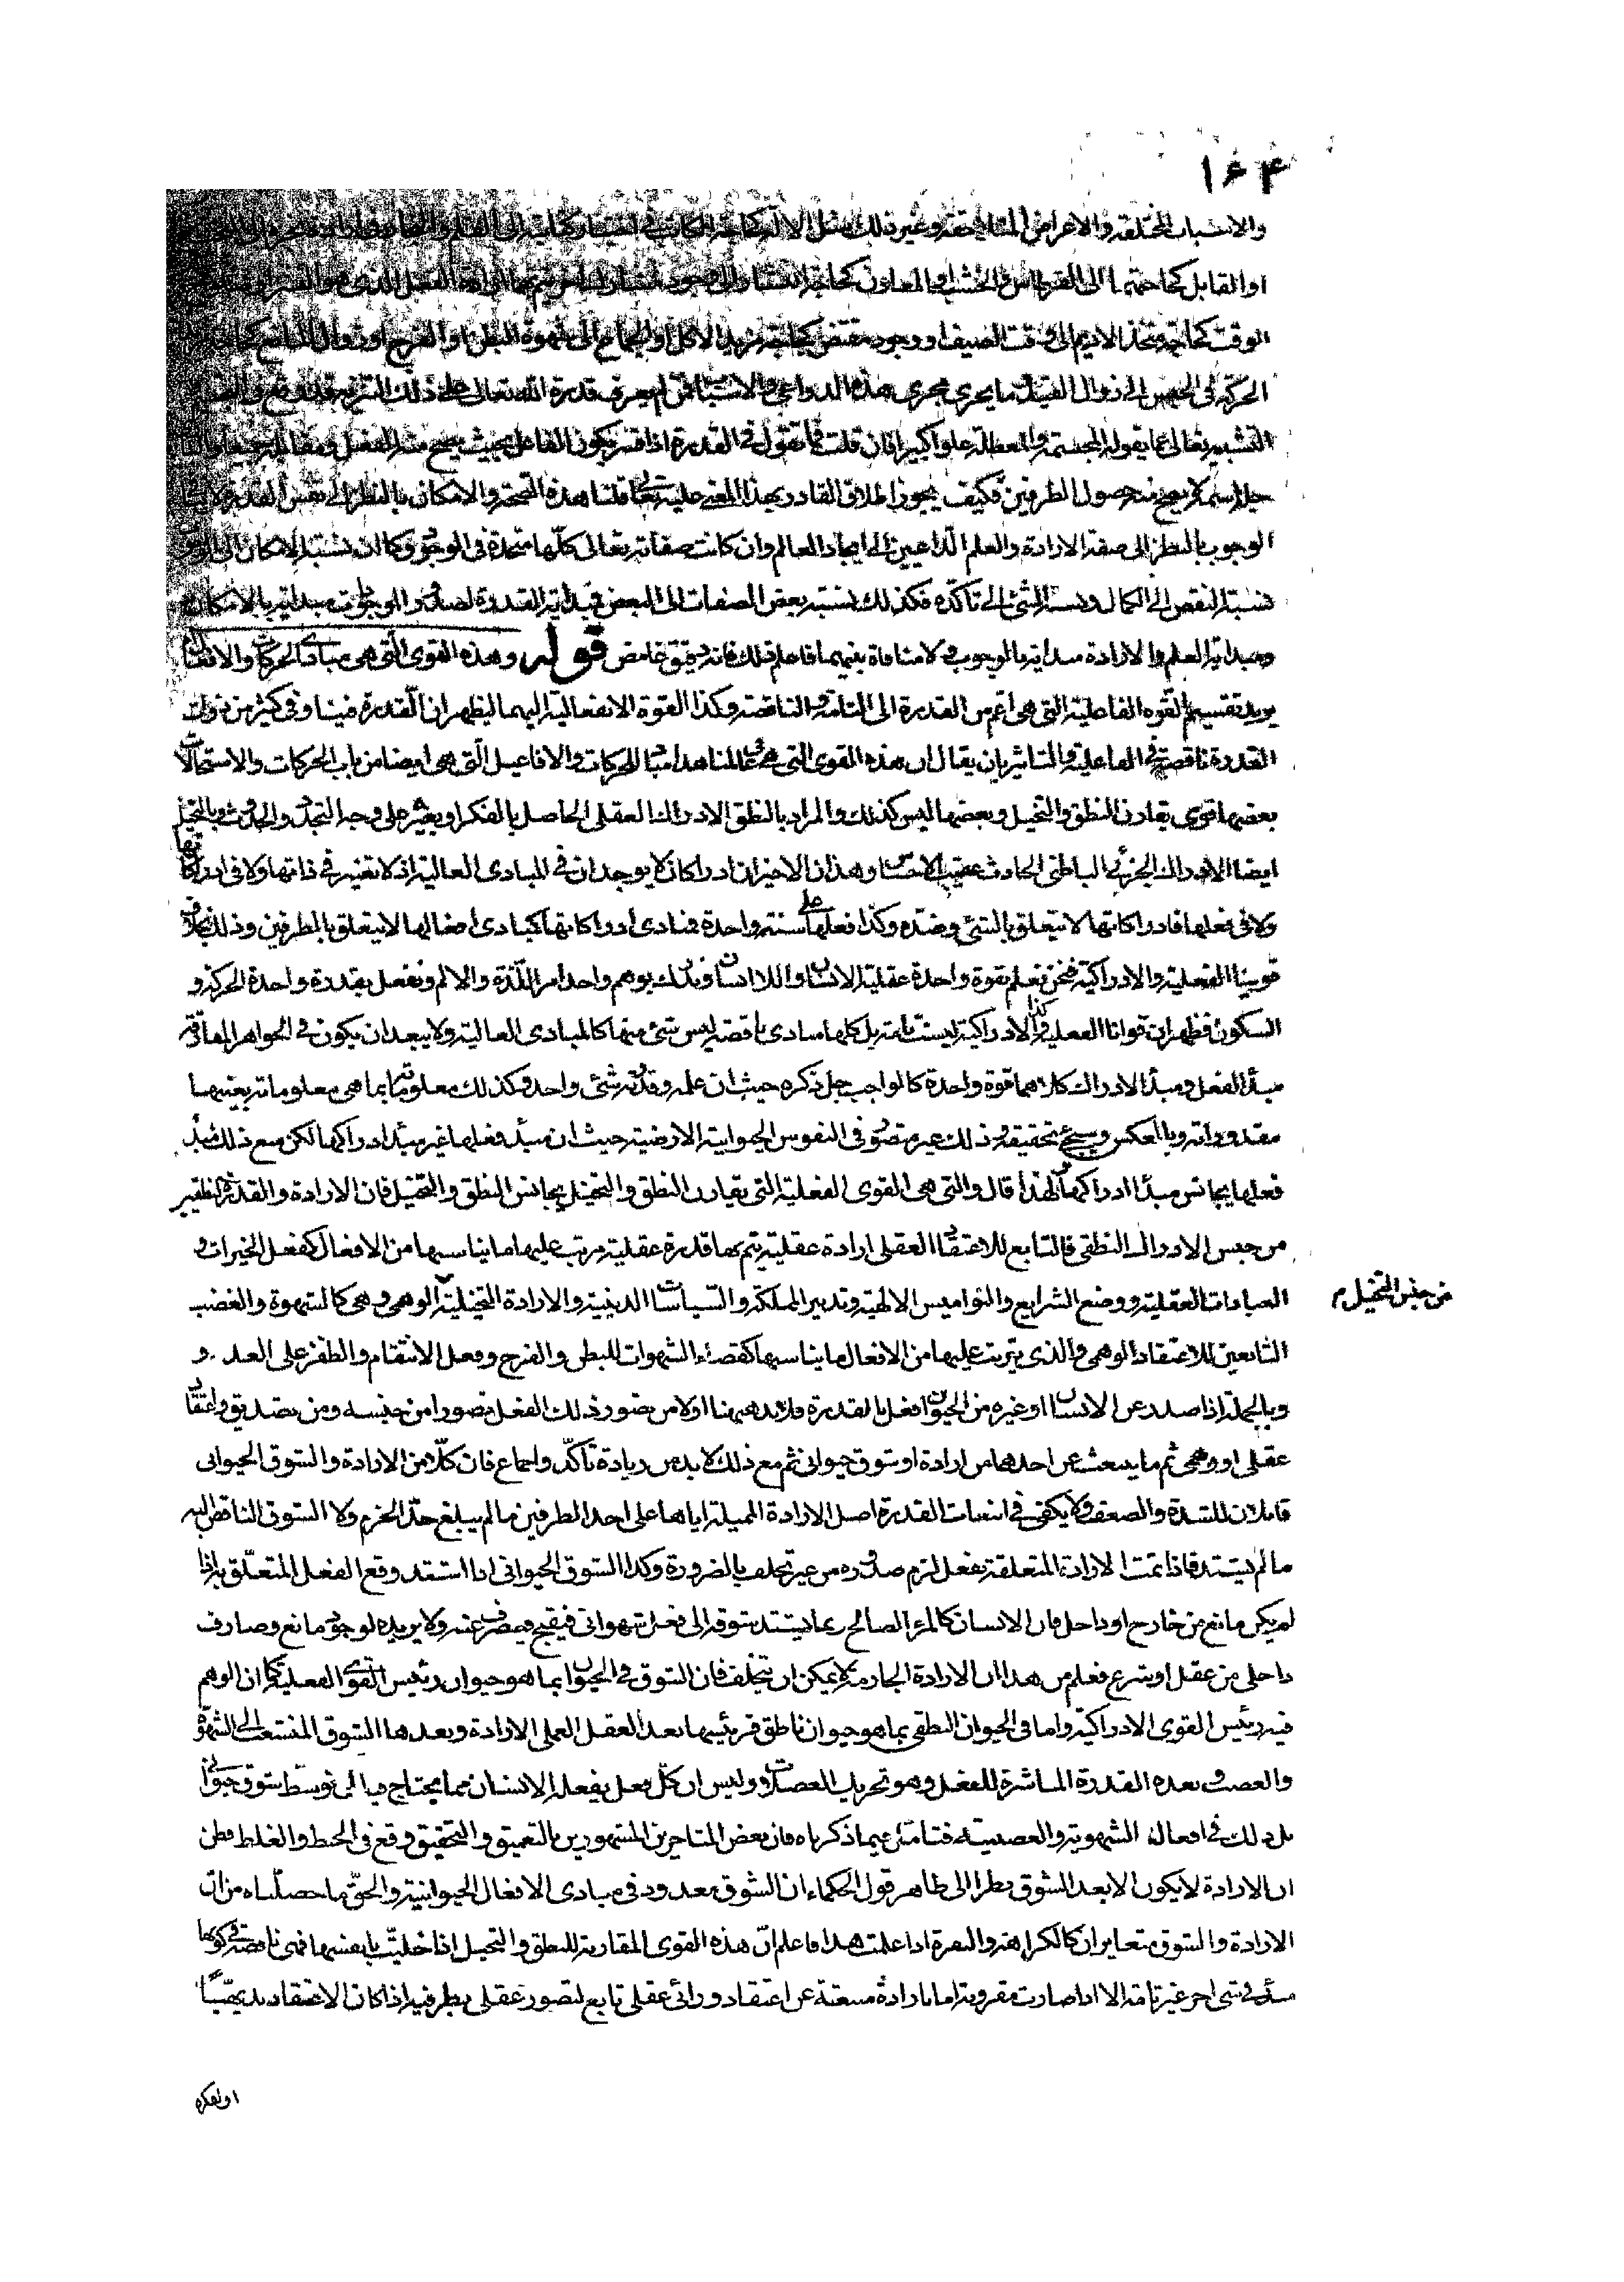 ١٦٤
والاسباب المختلفة والاعراض المتلاحقة وغير ذلك مثل الالة كحاجة الكاتب في
او القابل كحاجتهما الى القرطاس والخشب والمعاون كحاجة
الوقت كحاجة متخذ الاديم الى وقت الصيف او وجود مقتض كحاجة مريد الاكل او الجماع الى شهوة البطن او الفرج او زوال المانع
الحركة في الحبس الى زوال القيد الى ما يجري مجرى هذه الدواعي والاسباب فمن لم يعرف قدرة الله تعالى على ذلك التنزيه فقد وقع
التشبيه تعالى عما يقوله المجسمة والمعطلة علوا كبيرا فان قلت فما تقول في القدرة اذا فسر بكون الفاعل بحيث يصح منه الفعل ومقابله جميعا
جل اسمه لا يصح منه حصول الطرفين فكيف يجوز اطلاق القادر بهذا المعنى عليه تعالى قلنا هذه الصحة والامكان بالنظر الى نفس القدرة
الوجوب بالنظر الى صفة الارادة والعلم الداعيين الى ايجاد العالم وان كانت صفاته تعالى كلها متحدة في الوجود وكما ان نسبة الامكان الى الوجوب
نسبة النقص الى الكمال ونسبة الشئ الى تاكده فكذلك نسبة بعض الصفات الى البعض فمبدائية القدرة لصدور الموجودات مبدائية بالامكان
ومبدائية العلم والارادة مبدائية بالوجوب ولا منافاة بينهما فاعلم ذلك فانه دقيق غامض قوله وهذه القوى التي هي مبادى الحركات والافعال
يريد تقسيم القوه الفاعلية التي هي اعم من القدرة الى التامة والناقصة وكذا القوة الانفعالية اليهما ليظهر ان القدرة فينا وفي كثير من ذوات
القدرة ناقصة في الفاعلية والتاثير بان يقال ان هذه القوى التي هي في عالمنا هذا مباد للحركات والافاعيل التي هي ايضا من باب الحركات والاستحالات
بعضها قوى يقارن النطق والتخيل وبعضها ليس كذلك والمراد بالنطق الادراك العقلى الحاصل بالفكر او بغيره على وجه التجدد والحدوث وبالتخيل
ايضا الادراك الجزئي الباطنى الحادث عقيب الاحساس وهذان الاخيران ادراكان لا يوجدان في المبادى العالية اذ لا تغير في ذاتها ولا في ادراكاتها
ولا في فعلها فادراكاتها لا تتعلق بالشئ وضده وكذا فعلها على سنة واحدة فمبادى ادراكاتها كمبادى افعالها لا يتعلق بالطرفين وذلك بخلاف
قوتينا الفعلية والادراكية فنحن نعلم بقوة واحدة عقلية الانسان واللاانسان وندرك بوهم واحد امر اللذة والالم ونفعل بقدرة واحدة الحركة و
السكون فظهر ان قوانا الفعلية وكذا الادراكية ليست تامة بل كلها مبادى ناقصة ليس شئ منها كالمبادى العالية ولا يبعد ان يكون في الجواهر المفارقة
مبدأ الفعل ومبدأ الادراك كلاهما قوة واحدة كالواجب جل ذكره حيث ان علمه وقدرته شئ واحد وكذلك معلوماته بما هى معلوماته بعينها
مقدوراته وبالعكس وسيجئ تحقيقه وذلك غير متصور فى النفوس الحيوانية الارضية حيث ان مبدأ فعلها غير مبدأ ادراكها لكن مع ذلك مبدأ
فعلها يجانس مبدأ ادراكها ولهذا قال والتى هي القوى الفعلية التى يقارن النطق والتخيل يجانس النطق والتخيل فان الارادة والقدرة النطقيتين
من جنس الادراك النطقى فالتابع للاعتقاد العقلى ارادة عقلية يتم بها قدرة عقلية مرتب عليها ما يناسبها من الافعال كفعل الخيرات و
العبادات العقلية ووضع الشرايع والنواميس الالهية وتدبير المملكة والسياسات الدينية والارادة التخيلية الوهمى وهى كالشهوة والغضب
من جنس التخيل م
التابعين للاعتقاد الوهمى والذى يترتب عليها من الافعال ما يناسبها كقضاء الشهوات للبطن والفرج وفعل الانتقام والظفر على العدو
وبالجملة اذا صدر عن الانسان او غيره من الحيوان افعل بالقدرة فلابد هيهنا اولا من تصور ذلك الفعل تصورا من جنسه ومن تصديق واعتقاد
عقلى او وهمى ثم ما ينبعث عن احدهما من ارادة او شوق حيوانى ثم مع ذلك لا بد من زيادة تأكد واجماع فان كلا من الارادة والشوق الحيوانى
قابلان للشدة والضعف ولا يكفى في انبعاث القدرة اصل الارادة المميلة اياها على احد الطرفين ما لم يبلغ حد الجزم ولا الشوق الناقص اليه
ما لم يشتد فاذا تمت الارادة المتعلقة بفعل لزم صدوره من غير تخلف بالضرورة وكذا الشوق الحيوانى اذا اشتد وقع الفعل المتعلق به اذا
لم يكن مانع من خارج او داخل فان الانسان كالمرء الصالح ربما يشتد شوقه الى فعل شهوانى فيقبح فيصرف عنه ولا يريده لوجود مانع وصارف
داخلى من عقل او شرع فعلم من هذا ان الارادة الجازمة لا يمكن ان تتخلف فان الشوق في الحيوان بما هو حيوان رئيس القوى الفعلية كما ان الوهم
فيه رئيس القوى الادراكية واما فى الحيوان النطقى بما هو حيوان ناطق فرئيسها بعد العقل العملى الارادة وبعدها الشوق المنشعب الى الشهوة
والغضب وبعده القدرة المباشرة للفعل وهو تحريك العضلات وليس ان كل فعل يفعله الانسان مما يحتاج فيه الى توسط شوق حيوانى
بل ذلك في افعاله الشهوية والغضبية فتامل فيما ذكرناه فان بعض المتاخرين المشهورين بالتعميق والتحقيق وقع فى الخبط والغلط فظن
ان الارادة لا يكون الا بعد الشوق نظرا الى ظاهر قول الحكماء ان الشوق معدود فى مبادى الافعال الحيوانية والحق ما حصلناه من ان
الارادة والشوق متغايران كالكراهة والنفرة اذا علمت هذا فاعلم ان هذه القوى المقارنة للنطق والتخيل اذا خليت بانفسها فهى ناقصة فى كونها
مبدأ فى شئ اخر غير تامة الا اذا صارت مقرونة اما بارادة منبعثة عن اعتقاد ورائ عقلى تابع لتصور عقلى بطرفيه اذا كان الاعتقاد بديهيا
او لفكره